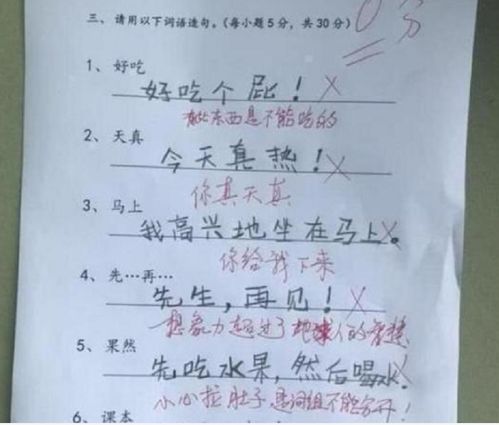 三、请用以下词语造句。（每小题5分，共30分）
0分
1、好吃
好吃个屁！
有些东西是不能吃的
2、天真
今天真热！
你真天真
3、马上
我高兴地坐在马上。
你给我下来
4、先…再…
先生，再见！
想象力超过了地球人的
5、果然
先吃水果，然后喝水.
小心拉肚子，是词组不能分开！
6、课本